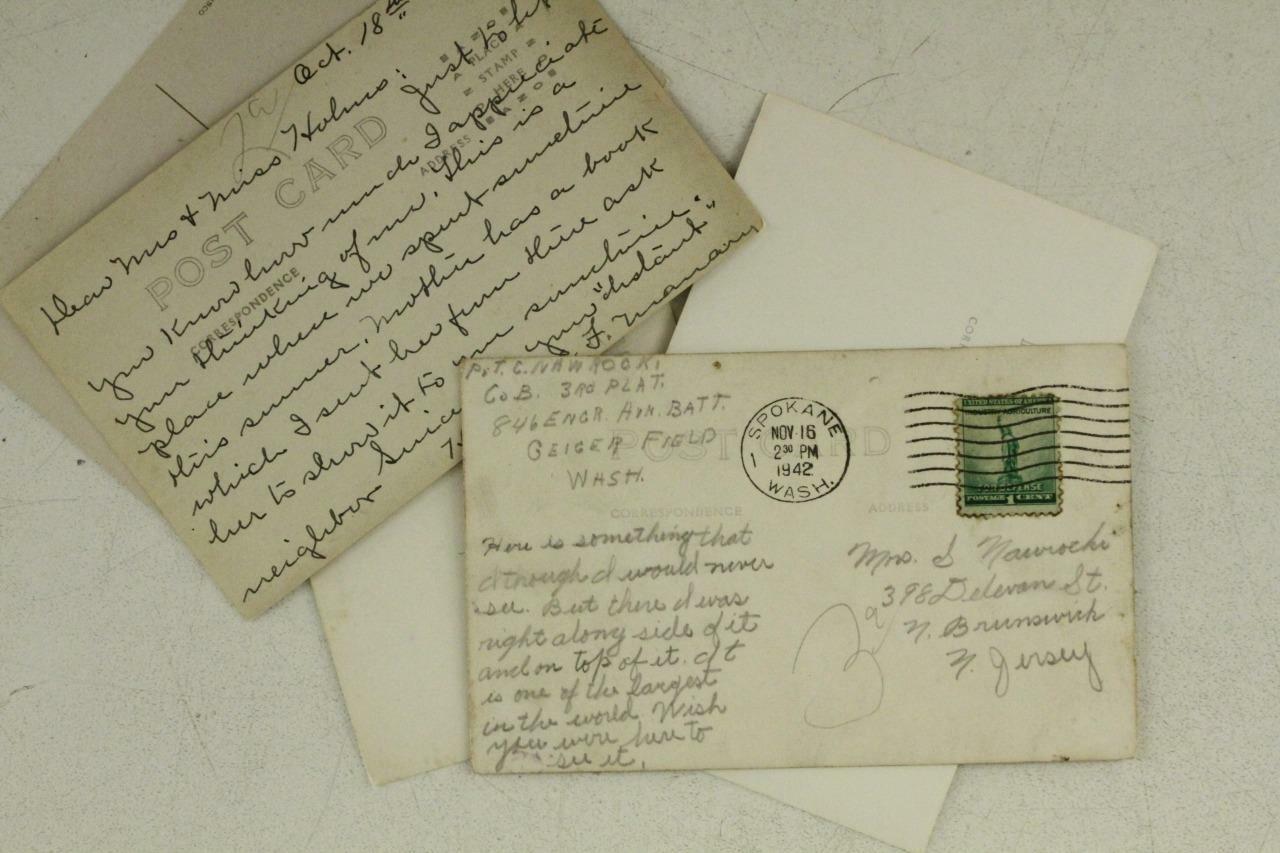 Oct. 18th
Dear Mrs & Miss Holmes: Just to let
you know how much I appreciate
your thinking of me. This is a
place where we spent sometime
this summer. Mother has a book
which I sent her from there ask
her to show it to you sometime.
neighbor
your "distant"
F.
POST CARD
CORRESPONDENCE
A PLACE
STAMP
HERE
ADDRESS
COR
Pvt. C. NAWROCKI
Co B. 3RD PLAT.
846 ENGR. AVN. BATT.
GEIGER FIELD
WASH.
SPOKANE
NOV 16
2 30 PM
1942
WASH.
1
UNITED STATES OF AMERICA
INDUSTRY AGRICULTURE
FOR DEFENSE
POSTAGE 1 CENT
POST CARD
CORRESPONDENCE
ADDRESS
Here is something that
I though I would never
see. But there I was
right along side of it
and on top of it. It
is one of the largest
in the world. Wish
you were here to
see it.
Mrs. S Nawrocki
398 Delevan St.
N. Brunswick
N. Jersey